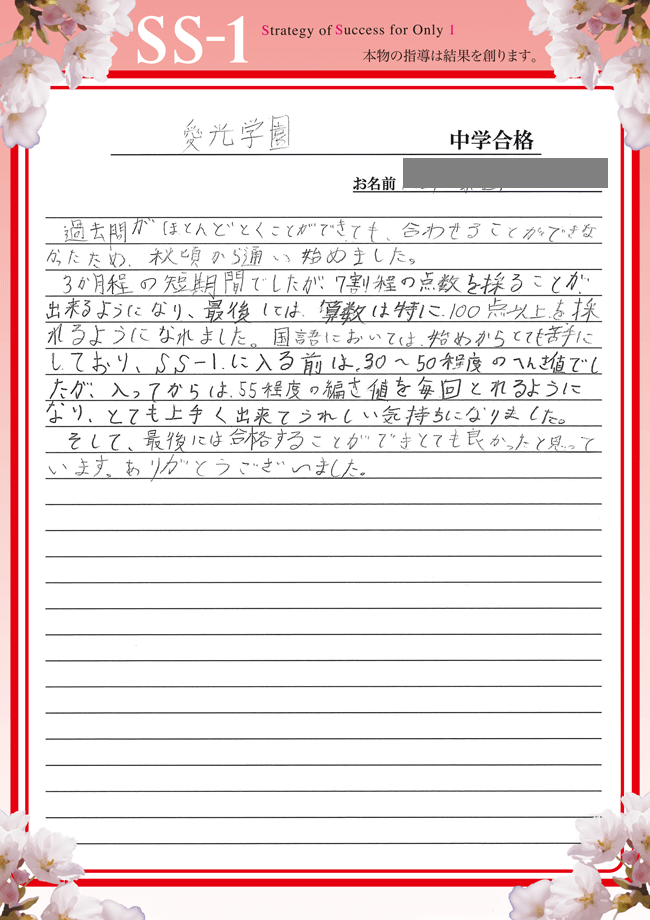 SS-1
Strategy of Success for Only 1
本物の指導は結果を創ります。
愛光学園 中学合格
お名前
過去問がほとんどとくことができても、合わせることができな
かったため、秋頃から通い始めました。
3か月程の短期間でしたが7割程の点数を採ることが
出来るようになり、最後しては、算数は特に100点以上を採
れるようになれました。国語においては、始めからとても苦手に
しており、SS-1に入る前は、30～50程度のへんさ値でし
たが、入ってからは、55程度の編さ値を毎回とれるように
なり、とても上手く出来てうれしい気持ちになりました。
そして、最後には合格することができとても良かったと思って
います。ありがとうございました。